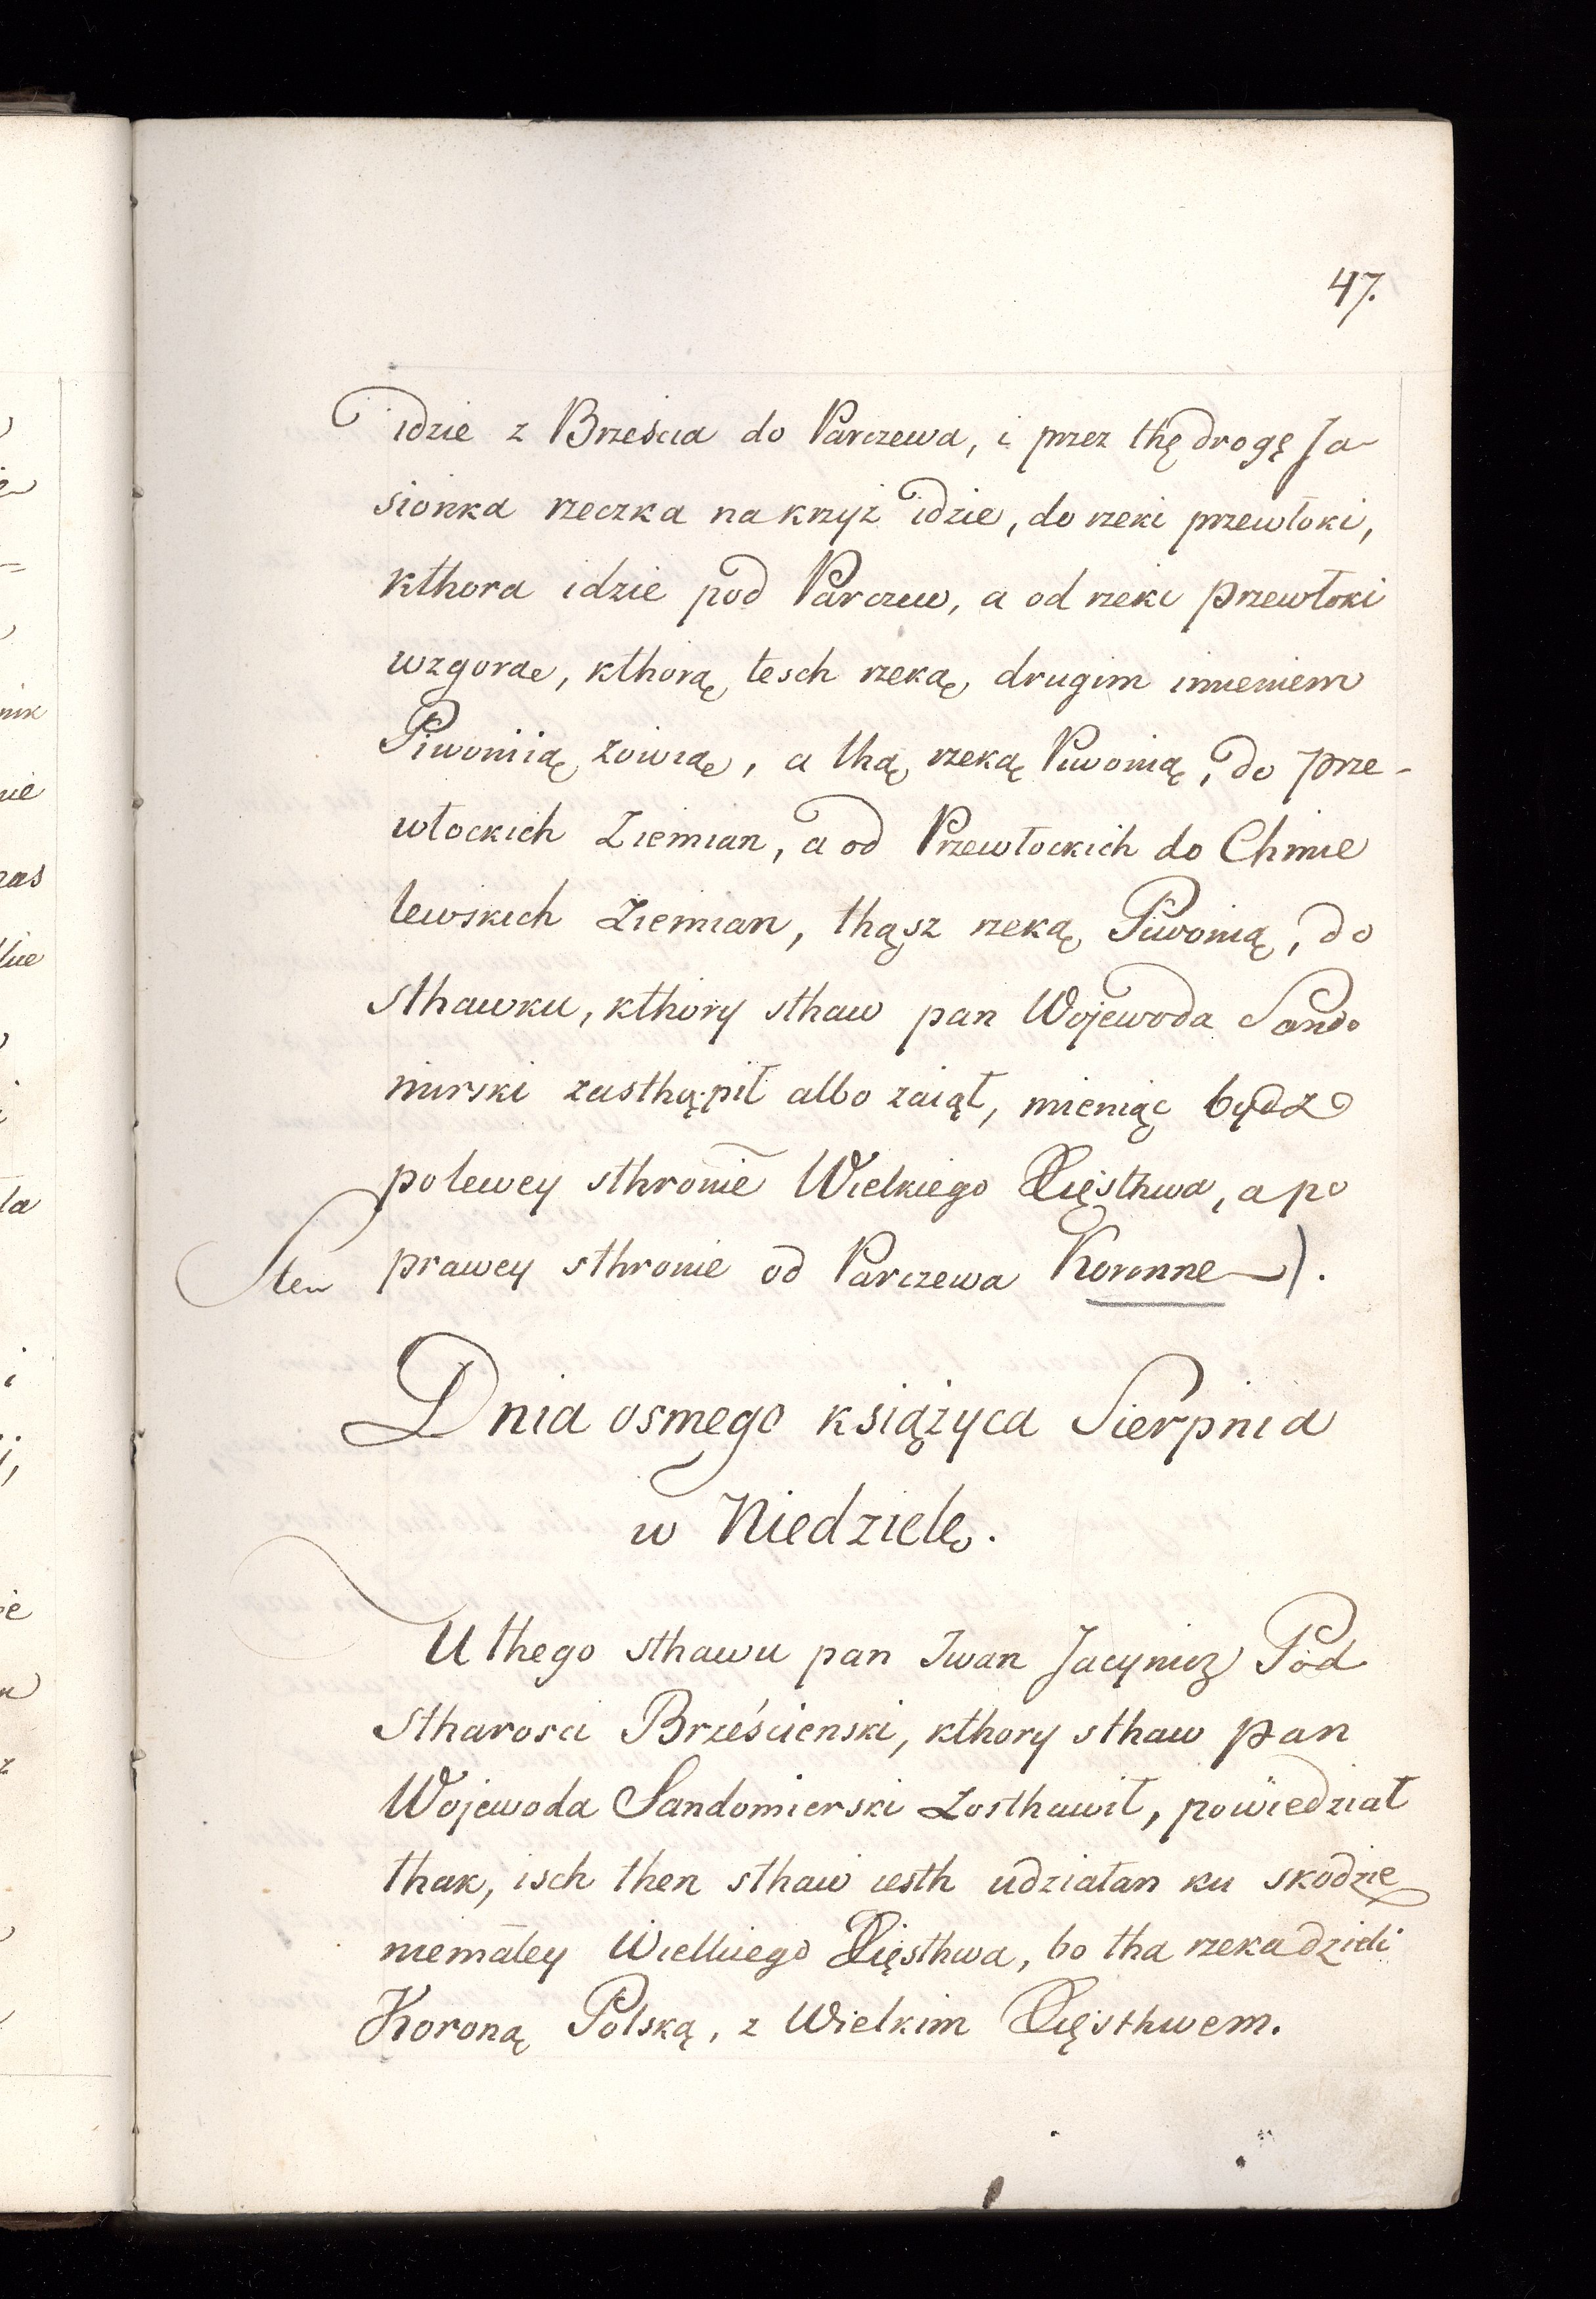 47.
idzie z Brześcia do Parczewa, i przez thę drogę Ja-
sionka rzeczka na krzyż idzie, do rzeki przewłoki,
kthora idzie pod Parczew, a od rzeki przewłoki
wzgorae, kthorą tesch rzeką, drugim imieniem
Piwoniią zowiąe, a thą rzeką Piwonią, do prze-
włockich Ziemian, a od Przewłockich do Chmie
lewskich Ziemian, thąsz rzeką Piwonią, do
sthawku, kthory sthaw pan Wojewoda Sando
mirski zasthąpił albo zaiął, mieniąc bydz
polewey sthronie Wielkiego Xięsthwa, a po
prawey sthronie od Parczewa Koronne).
Sten
Dnia osmego książyca Sierpnia
w Niedzielę.
U thego sthawu pan Iwan Jacynicz Pod
Stharosci Brześcienski, kthory sthaw pan
Wojewoda Sandomierski zosthawił, powiedział
thak, isch then sthaw iesth udziałan ku skodzie
niemałey Wielkiego Xięsthwa, bo tha rzeka dzieli
Koroną Polską, z Wielkim Xięsthwem.